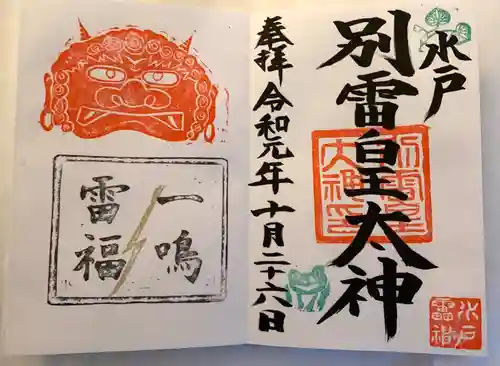 水戸
別雷皇太神
奉拝 令和元年十月二十六日
一鳴
雷福
別雷皇
太神印
水戸
雷神